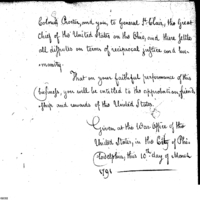 Colonel Procter, and you, to General St Clair, the Great
Chief of the United States on the Ohio, and there settle
all disputes on terms of reciprocal justice and hu-
manity.
That on your faithful performance of this
business, you will be entitled to the approbation, friend
ship and rewards of the United States.
Given at the War Office of the
United States, in the City of Phi-
ladelphia, this 10th day of March
1791